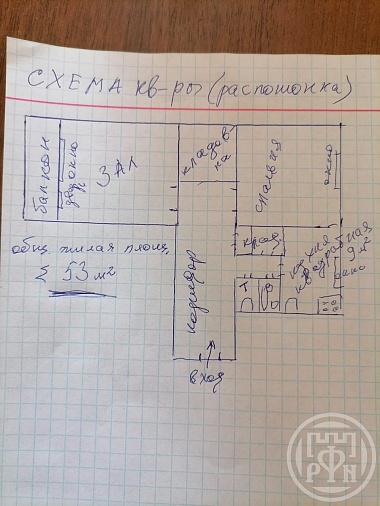 СХЕМА кв-ры (распошонка)
балкон
двер окно
ЗАЛ
кладов-
ка
спальня
окно
общ жилая площ.
53 м²
коридор
клад.
кухня
квадратная
9 м²
окно
Т
В
вход
РФН